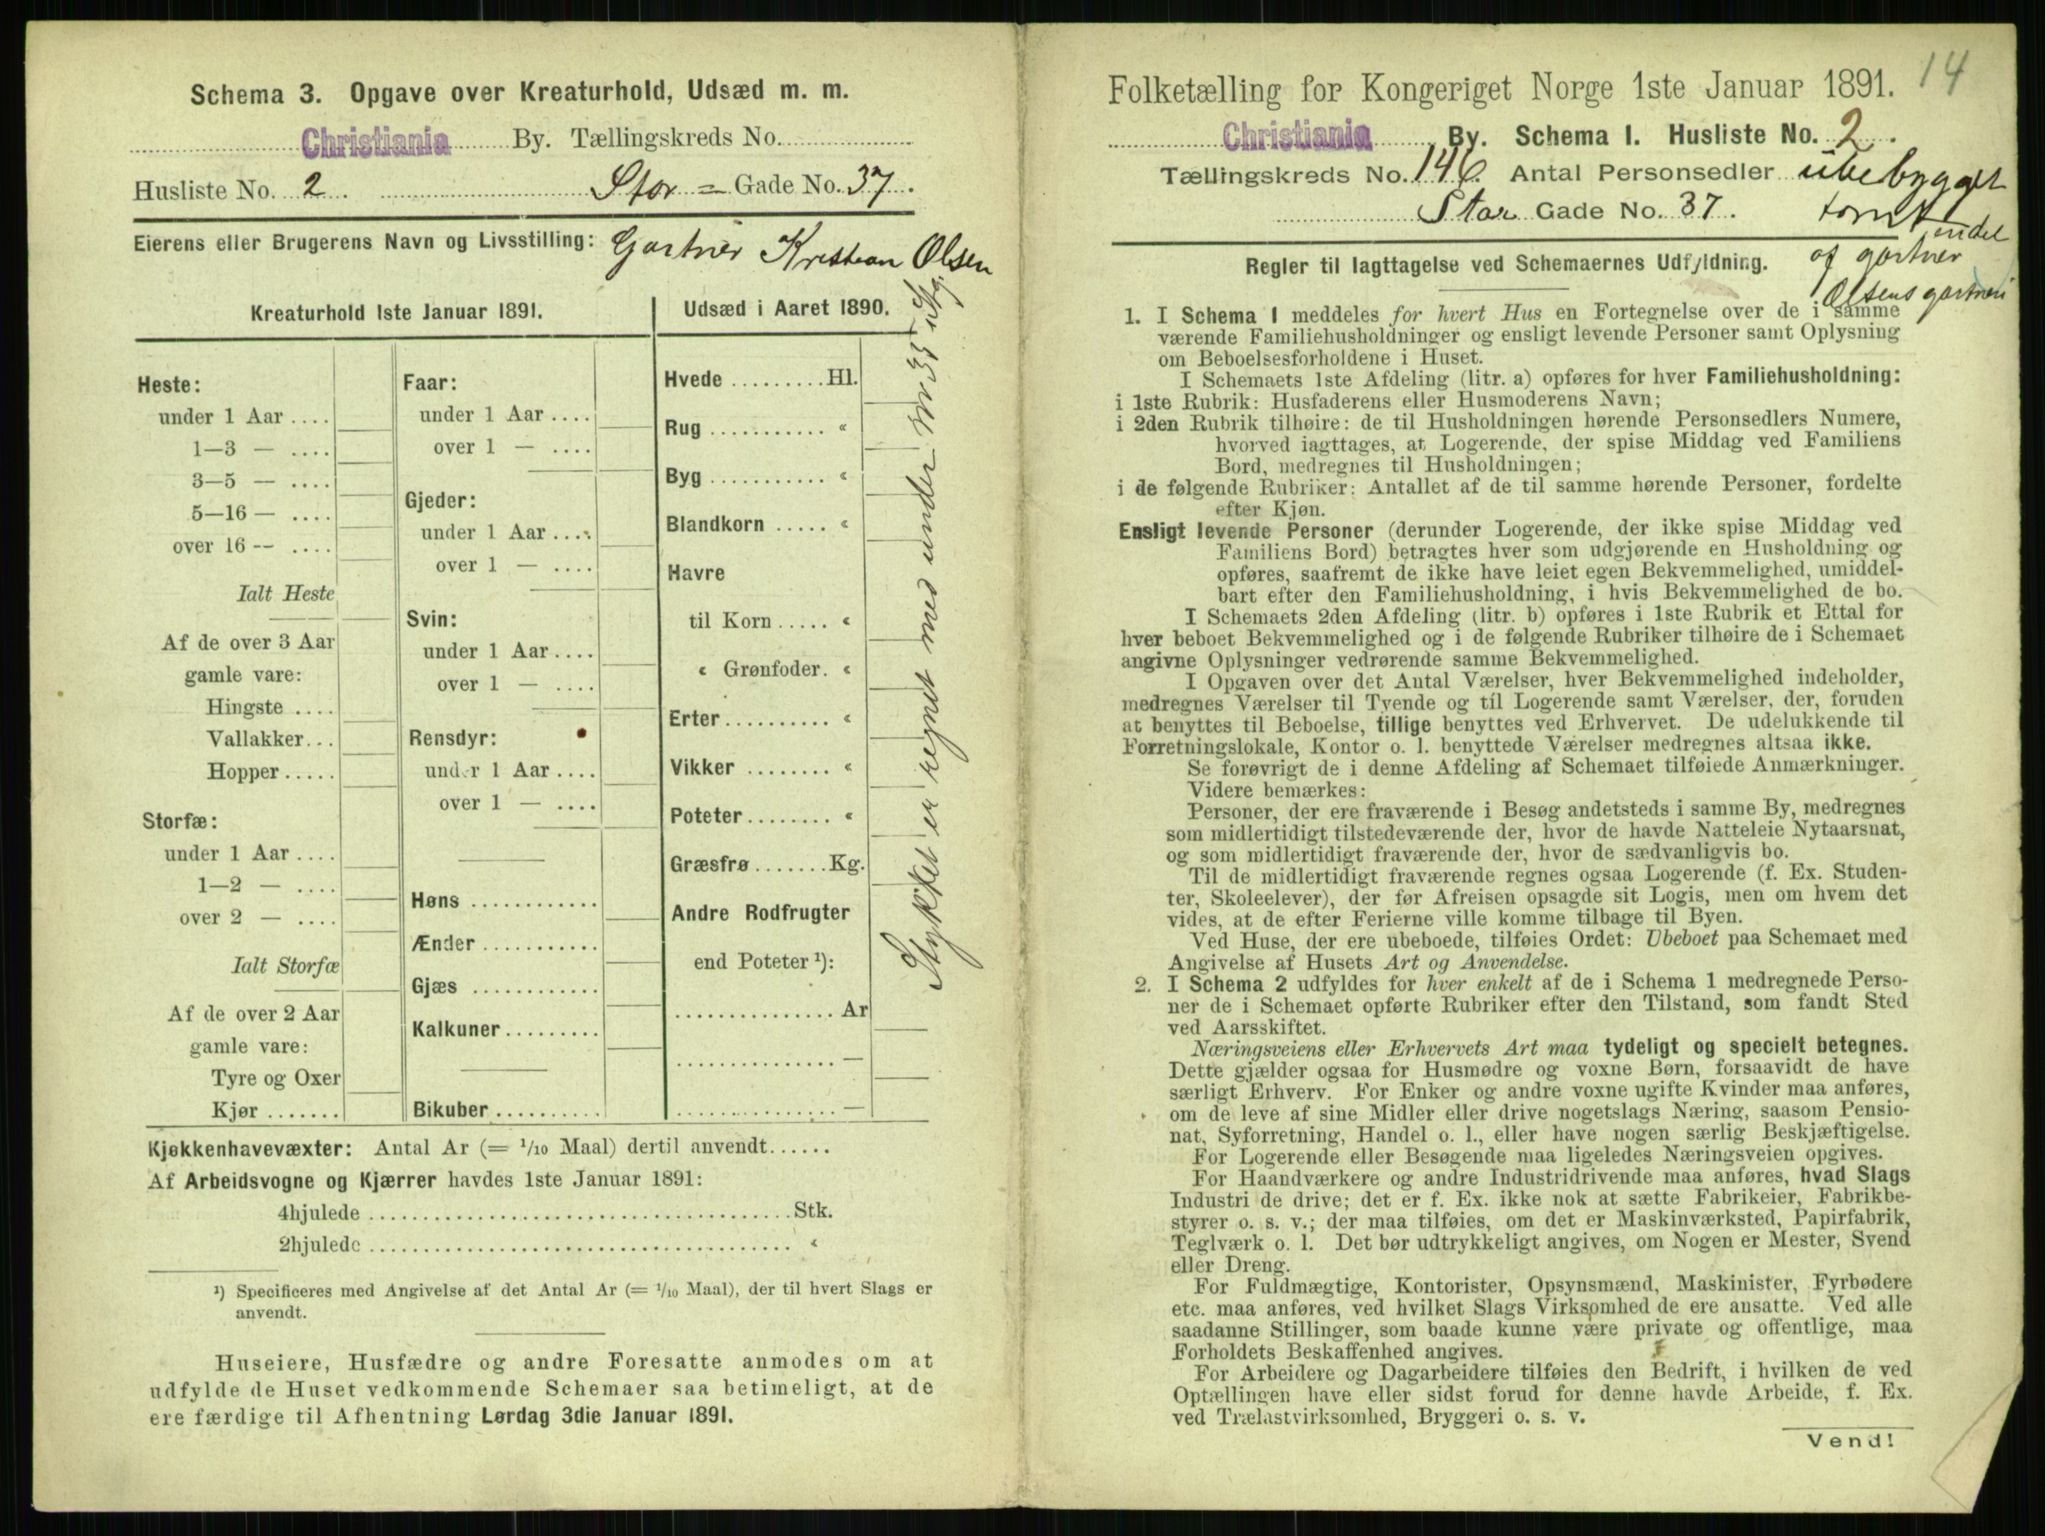 Schema 3. Opgave over Kreaturhold, Udsæd m. m.
Christiania By. Tællingskreds No.
Husliste No. 2. Stor = Gade No. 37.
Eierens eller Brugerens Navn og Livsstilling: Gartner Kristian Olsen
Kreaturhold 1ste Januar 1891.
Heste:
under 1 Aar ....
1—3 — ....
3—5 — ....
5—16 — ....
over 16 — ....
Ialt Heste
Af de over 3 Aar
gamle vare:
Hingste ....
Vallakker...
Hopper.....
Storfæ:
under 1 Aar ....
1—2 — ....
over 2 — ....
Ialt Storfæ
Af de over 2 Aar
gamle vare:
Tyre og Oxer
Kjør .......
Faar:
under 1 Aar ....
over 1 — ....
Gjeder:
under 1 Aar ....
over 1 — ....
Svin:
under 1 Aar ....
over 1 — ....
Rensdyr:
under 1 Aar ....
over 1 — ....
Høns ............
Ænder...........
Gjæs ............
Kalkuner.........
Bikuber ..........
Udsæd i Aaret 1890.
Hvede .........Hl.
Rug ........... «
Byg ........... «
Blandkorn ..... «
Havre
til Korn ..... «
« Grønfoder. «
Erter .......... «
Vikker ........ «
Poteter........ «
Græsfrø .......Kg.
Andre Rodfrugter
end Poteter ¹):
............... Ar
............... —
............... —
Stykket er regnet med under No 35
Kjøkkenhavevæxter: Antal Ar (= 1/10 Maal) dertil anvendt......
Af Arbeidsvogne og Kjærrer havdes 1ste Januar 1891:
4hjulede ........................................Stk.
2hjulede ........................................ «
¹) Specificeres med Angivelse af det Antal Ar (= 1/10 Maal), der til hvert Slags er
anvendt.
Huseiere, Husfædre og andre Foresatte anmodes om at
udfylde de Huset vedkommende Schemaer saa betimeligt, at de
ere færdige til Afhentning Lørdag 3die Januar 1891.
14
Folketælling for Kongeriget Norge 1ste Januar 1891.
Christiania By. Schema I. Husliste No. 2.
Tællingskreds No. 146 Antal Personsedler ubebygget
Stor Gade No. 37. tomt endel
af gartner
Olsens gartneri
Regler til Iagttagelse ved Schemaernes Udfyldning.
1. I Schema 1 meddeles for hvert Hus en Fortegnelse over de i samme
værende Familiehusholdninger og ensligt levende Personer samt Oplysning
om Beboelsesforholdene i Huset.
I Schemaets 1ste Afdeling (litr. a) opføres for hver Familiehusholdning:
i 1ste Rubrik: Husfaderens eller Husmoderens Navn;
i 2den Rubrik tilhøire: de til Husholdningen hørende Personsedlers Numere,
hvorved iagttages, at Logerende, der spise Middag ved Familiens
Bord, medregnes til Husholdningen;
i de følgende Rubriker: Antallet af de til samme hørende Personer, fordelte
efter Kjøn.
Ensligt levende Personer (derunder Logerende, der ikke spise Middag ved
Familiens Bord) betragtes hver som udgjørende en Husholdning og
opføres, saafremt de ikke have leiet egen Bekvemmelighed, umiddel-
bart efter den Familiehusholdning, i hvis Bekvemmelighed de bo.
I Schemaets 2den Afdeling (litr. b) opføres i 1ste Rubrik et Ettal for
hver beboet Bekvemmelighed og i de følgende Rubriker tilhøire de i Schemaet
angivne Oplysninger vedrørende samme Bekvemmelighed.
I Opgaven over det Antal Værelser, hver Bekvemmelighed indeholder,
medregnes Værelser til Tyende og til Logerende samt Værelser, der, foruden
at benyttes til Beboelse, tillige benyttes ved Erhvervet. De udelukkende til
Forretningslokale, Kontor o. l. benyttede Værelser medregnes altsaa ikke.
Se forøvrigt de i denne Afdeling af Schemaet tilføiede Anmærkninger.
Videre bemærkes:
Personer, der ere fraværende i Besøg andetsteds i samme By, medregnes
som midlertidigt tilstedeværende der, hvor de havde Natteleie Nytaarsnat,
og som midlertidigt fraværende der, hvor de sædvanligvis bo.
Til de midlertidigt fraværende regnes ogsaa Logerende (f. Ex. Studen-
ter, Skoleelever), der før Afreisen opsagde sit Logis, men om hvem det
vides, at de efter Ferierne ville komme tilbage til Byen.
Ved Huse, der ere ubeboede, tilføies Ordet: Ubeboet paa Schemaet med
Angivelse af Husets Art og Anvendelse.
2. I Schema 2 udfyldes for hver enkelt af de i Schema 1 medregnede Perso-
ner de i Schemaet opførte Rubriker efter den Tilstand, som fandt Sted
ved Aarsskiftet.
Næringsveiens eller Erhvervets Art maa tydeligt og specielt betegnes.
Dette gjælder ogsaa for Husmødre og voxne Børn, forsaavidt de have
særligt Erhverv. For Enker og andre voxne ugifte Kvinder maa anføres,
om de leve af sine Midler eller drive nogetslags Næring, saasom Pensio-
nat, Syforretning, Handel o. l., eller have nogen særlig Beskjæftigelse.
For Logerende eller Besøgende maa ligeledes Næringsveien opgives.
For Haandværkere og andre Industridrivende maa anføres, hvad Slags
Industri de drive; det er f. Ex. ikke nok at sætte Fabrikeier, Fabrikbe-
styrer o. s. v.; der maa tilføies, om det er Maskinværksted, Papirfabrik,
Teglværk o. l. Det bør udtrykkeligt angives, om Nogen er Mester, Svend
eller Dreng.
For Fuldmægtige, Kontorister, Opsynsmænd, Maskinister, Fyrbødere
etc. maa anføres, ved hvilket Slags Virksomhed de ere ansatte. Ved alle
saadanne Stillinger, som baade kunne være private og offentlige, maa
Forholdets Beskaffenhed angives.
For Arbeidere og Dagarbeidere tilføies den Bedrift, i hvilken de ved
Optællingen have eller sidst forud for denne havde Arbeide, f. Ex.
ved Trælastvirksomhed, Bryggeri o. s. v.
Vend!